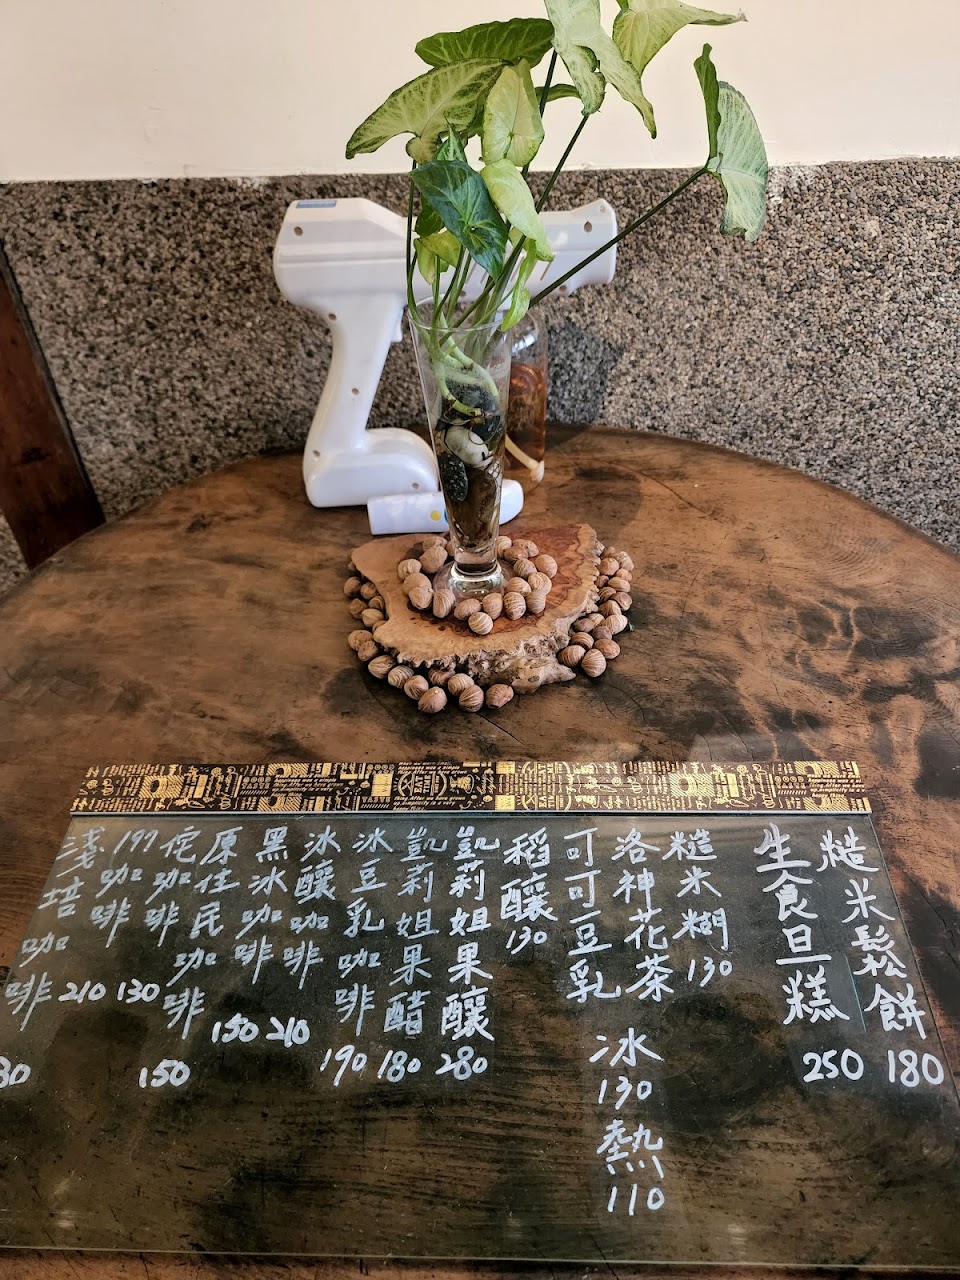 糙米鬆餅 180
生食旦糕 250
糙米糊 130
洛神花茶
可可豆乳
冰 130
熱 110
稻釀 130
凱莉姐果釀 280
凱莉姐果醋 180
冰豆乳咖啡 190
冰釀咖啡 210
黑冰咖啡 150
原住民咖啡 150
佗咖啡 130
197咖啡 210
淺培咖啡